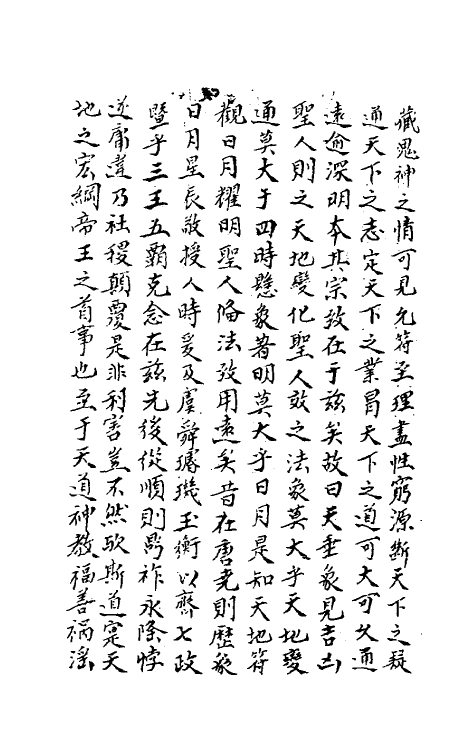 藏鬼神之情可見允符至理盡性窮源斷天下之疑
通天下之志定天下之業冒天下之道可大可久通
遠逾深明本其宗致在于茲矣故曰天垂象見吉凶
聖人則之天地變化聖人效之法象莫大乎天地變
通莫大于四時懸象著明莫大乎日月是知天地符
觀日月耀明聖人俻法致用遠矣昔在唐堯則歷象
日月星辰敬授人時爰及虞舜璿璣玉衡以齊七政
暨乎三王五霸克念在茲先後從順則鼎祚永隆悖
逆庸違乃社稷顛覆是非利害豈不然歟斯道寔天
地之宏綱帝王之首事也至于天道神教福善禍淫